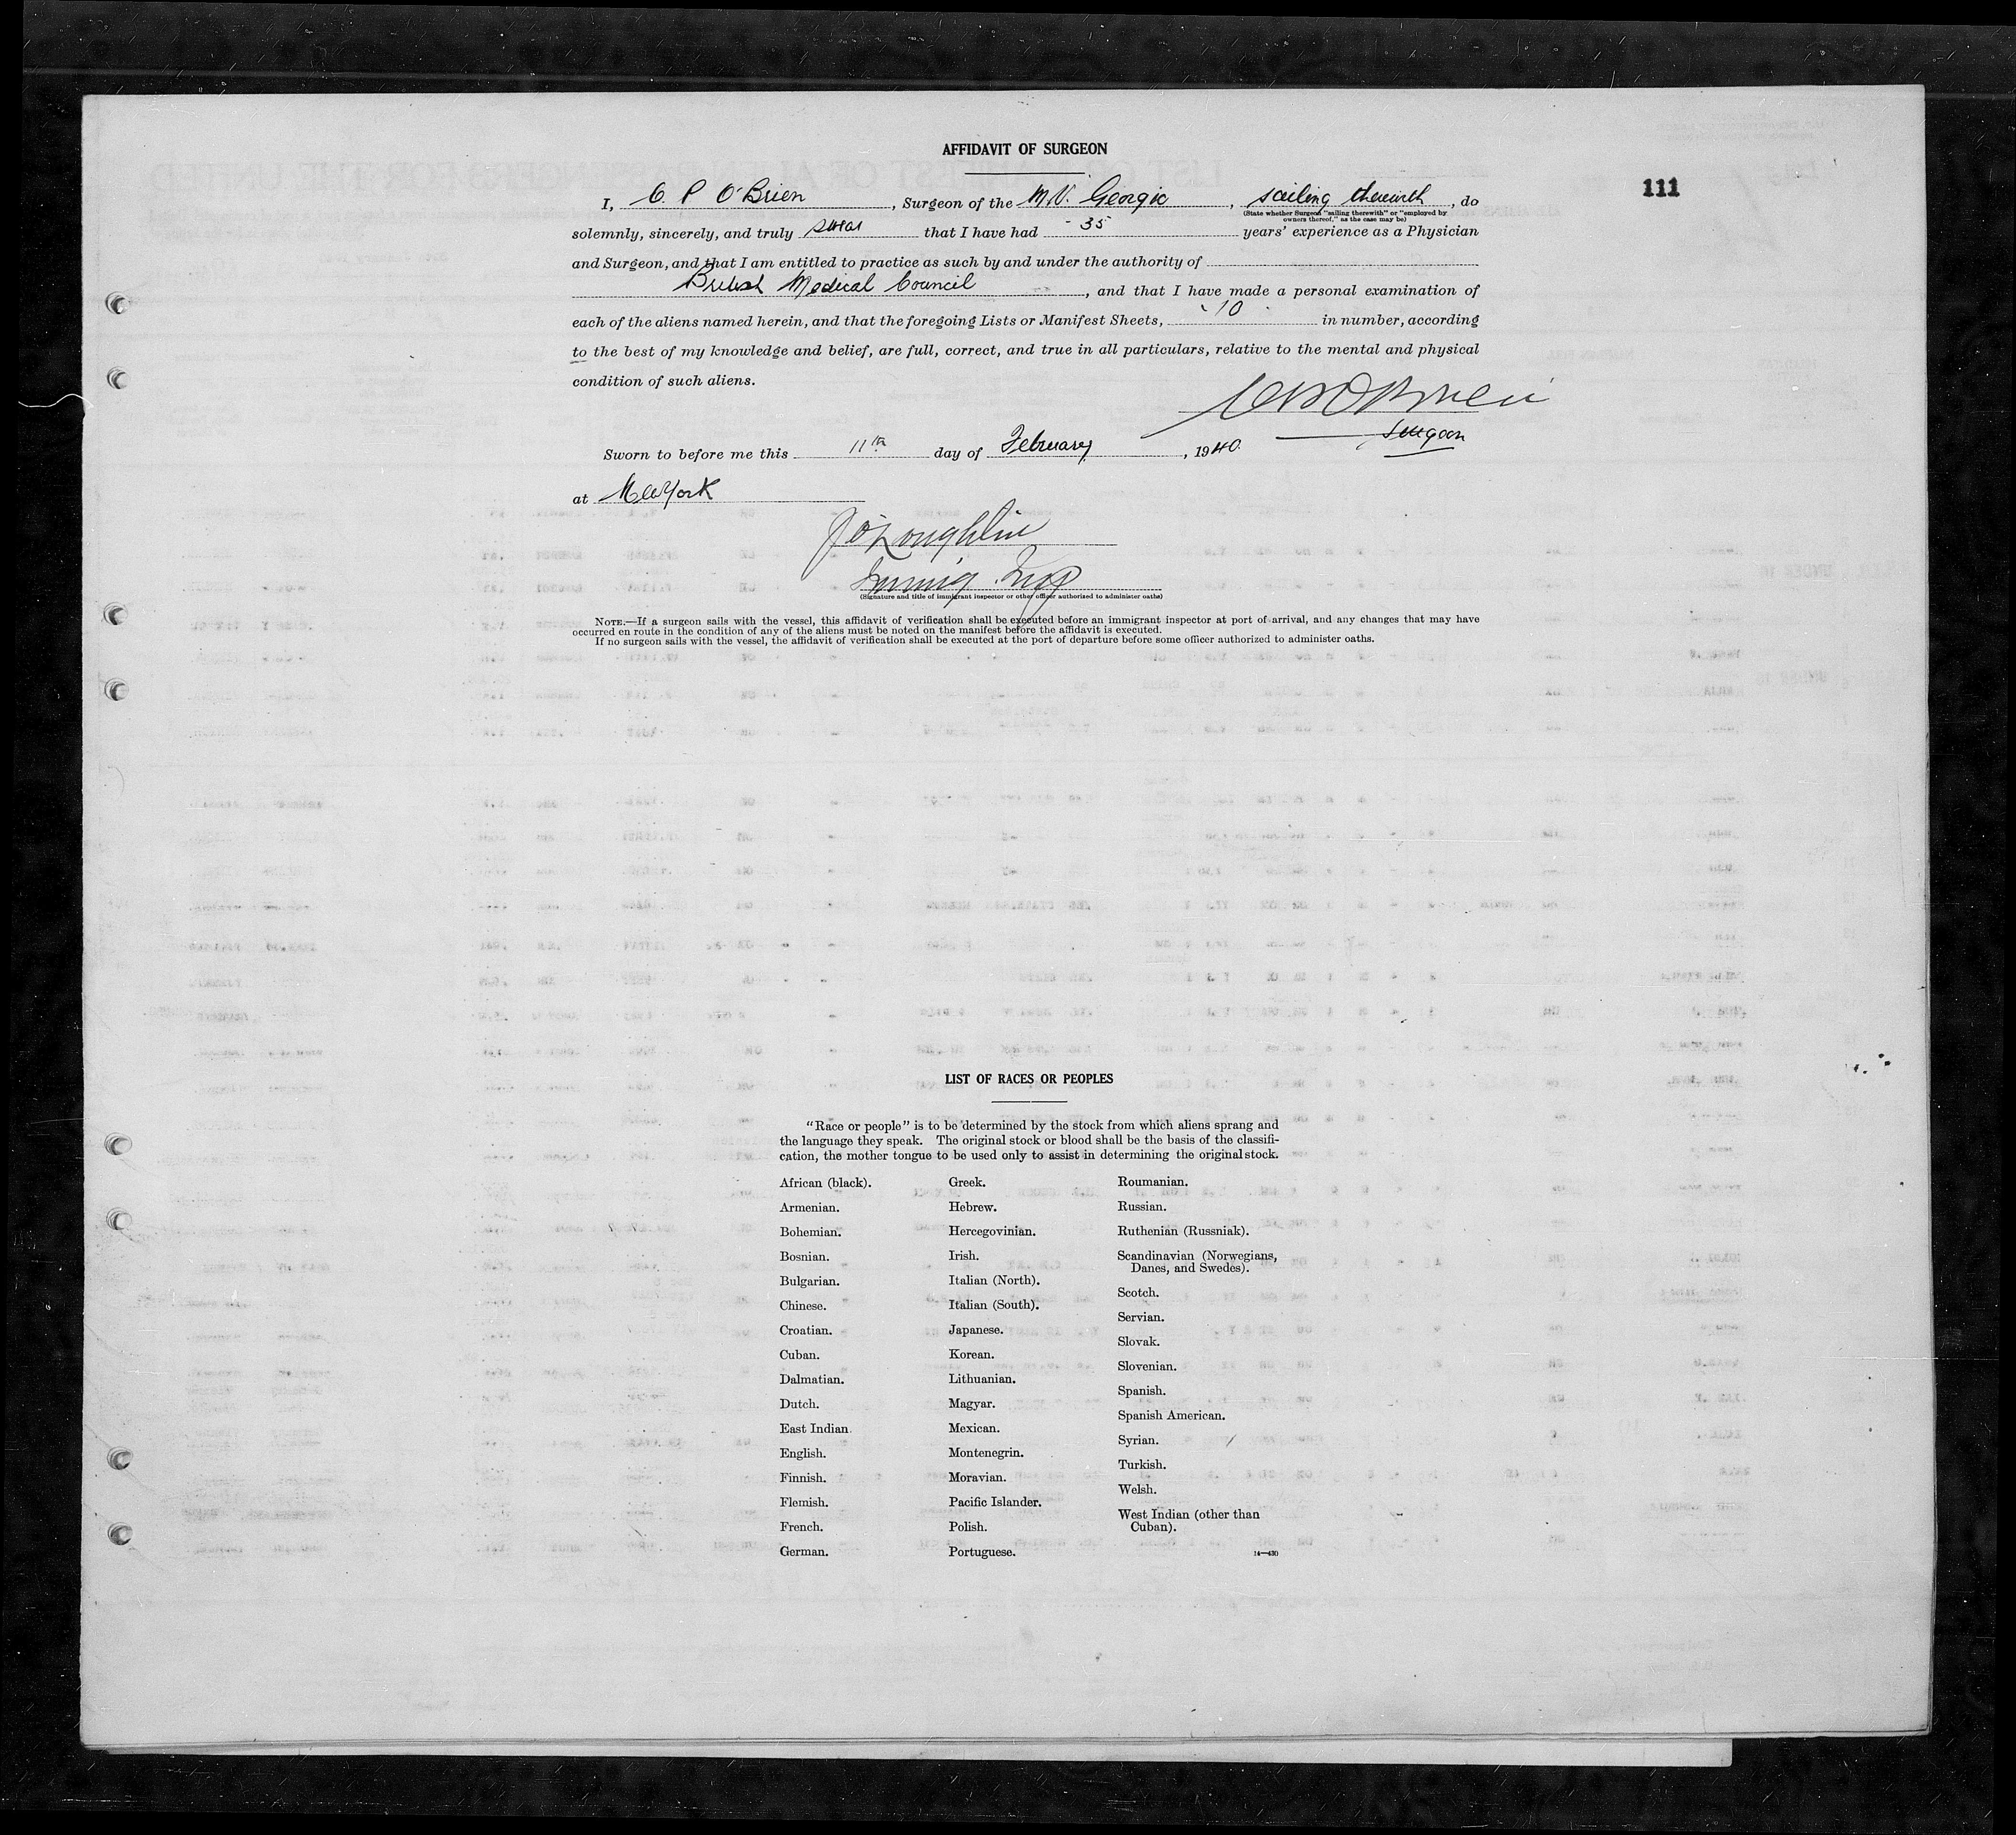 AFFIDAVIT OF SURGEON
111
I, C. P O'Brien, Surgeon of the M.V. Georgic, sailing therewith, do
(State whether Surgeon "sailing therewith" or "employed by
owners thereof," as the case may be)
solemnly, sincerely, and truly swear that I have had - 35 years' experience as a Physician
and Surgeon, and that I am entitled to practice as such by and under the authority of
British Medical Council, and that I have made a personal examination of
each of the aliens named herein, and that the foregoing Lists or Manifest Sheets, 10 in number, according
to the best of my knowledge and belief, are full, correct, and true in all particulars, relative to the mental and physical
condition of such aliens.
O'Brien
Surgeon
Sworn to before me this 11th day of February, 1940.
at New York
J O'Loughlin
Immig. Insp
(Signature and title of immigrant inspector or other officer authorized to administer oaths)
NOTE.—If a surgeon sails with the vessel, this affidavit of verification shall be executed before an immigrant inspector at port of arrival, and any changes that may have
occurred en route in the condition of any of the aliens must be noted on the manifest before the affidavit is executed.
If no surgeon sails with the vessel, the affidavit of verification shall be executed at the port of departure before some officer authorized to administer oaths.
LIST OF RACES OR PEOPLES
"Race or people" is to be determined by the stock from which aliens sprang and
the language they speak. The original stock or blood shall be the basis of the classifi-
cation, the mother tongue to be used only to assist in determining the original stock.
African (black).
Armenian.
Bohemian.
Bosnian.
Bulgarian.
Chinese.
Croatian.
Cuban.
Dalmatian.
Dutch.
East Indian.
English.
Finnish.
Flemish.
French.
German.
Greek.
Hebrew.
Hercegovinian.
Irish.
Italian (North).
Italian (South).
Japanese.
Korean.
Lithuanian.
Magyar.
Mexican.
Montenegrin.
Moravian.
Pacific Islander.
Polish.
Portuguese.
Roumanian.
Russian.
Ruthenian (Russniak).
Scandinavian (Norwegians,
Danes, and Swedes).
Scotch.
Servian.
Slovak.
Slovenian.
Spanish.
Spanish American.
Syrian.
Turkish.
Welsh.
West Indian (other than
Cuban).
14—430